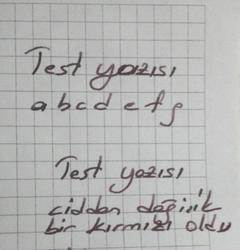 Test yazısı
a b c d e f g
Test yazısı
cidden değişik
bir kırmızı oldu